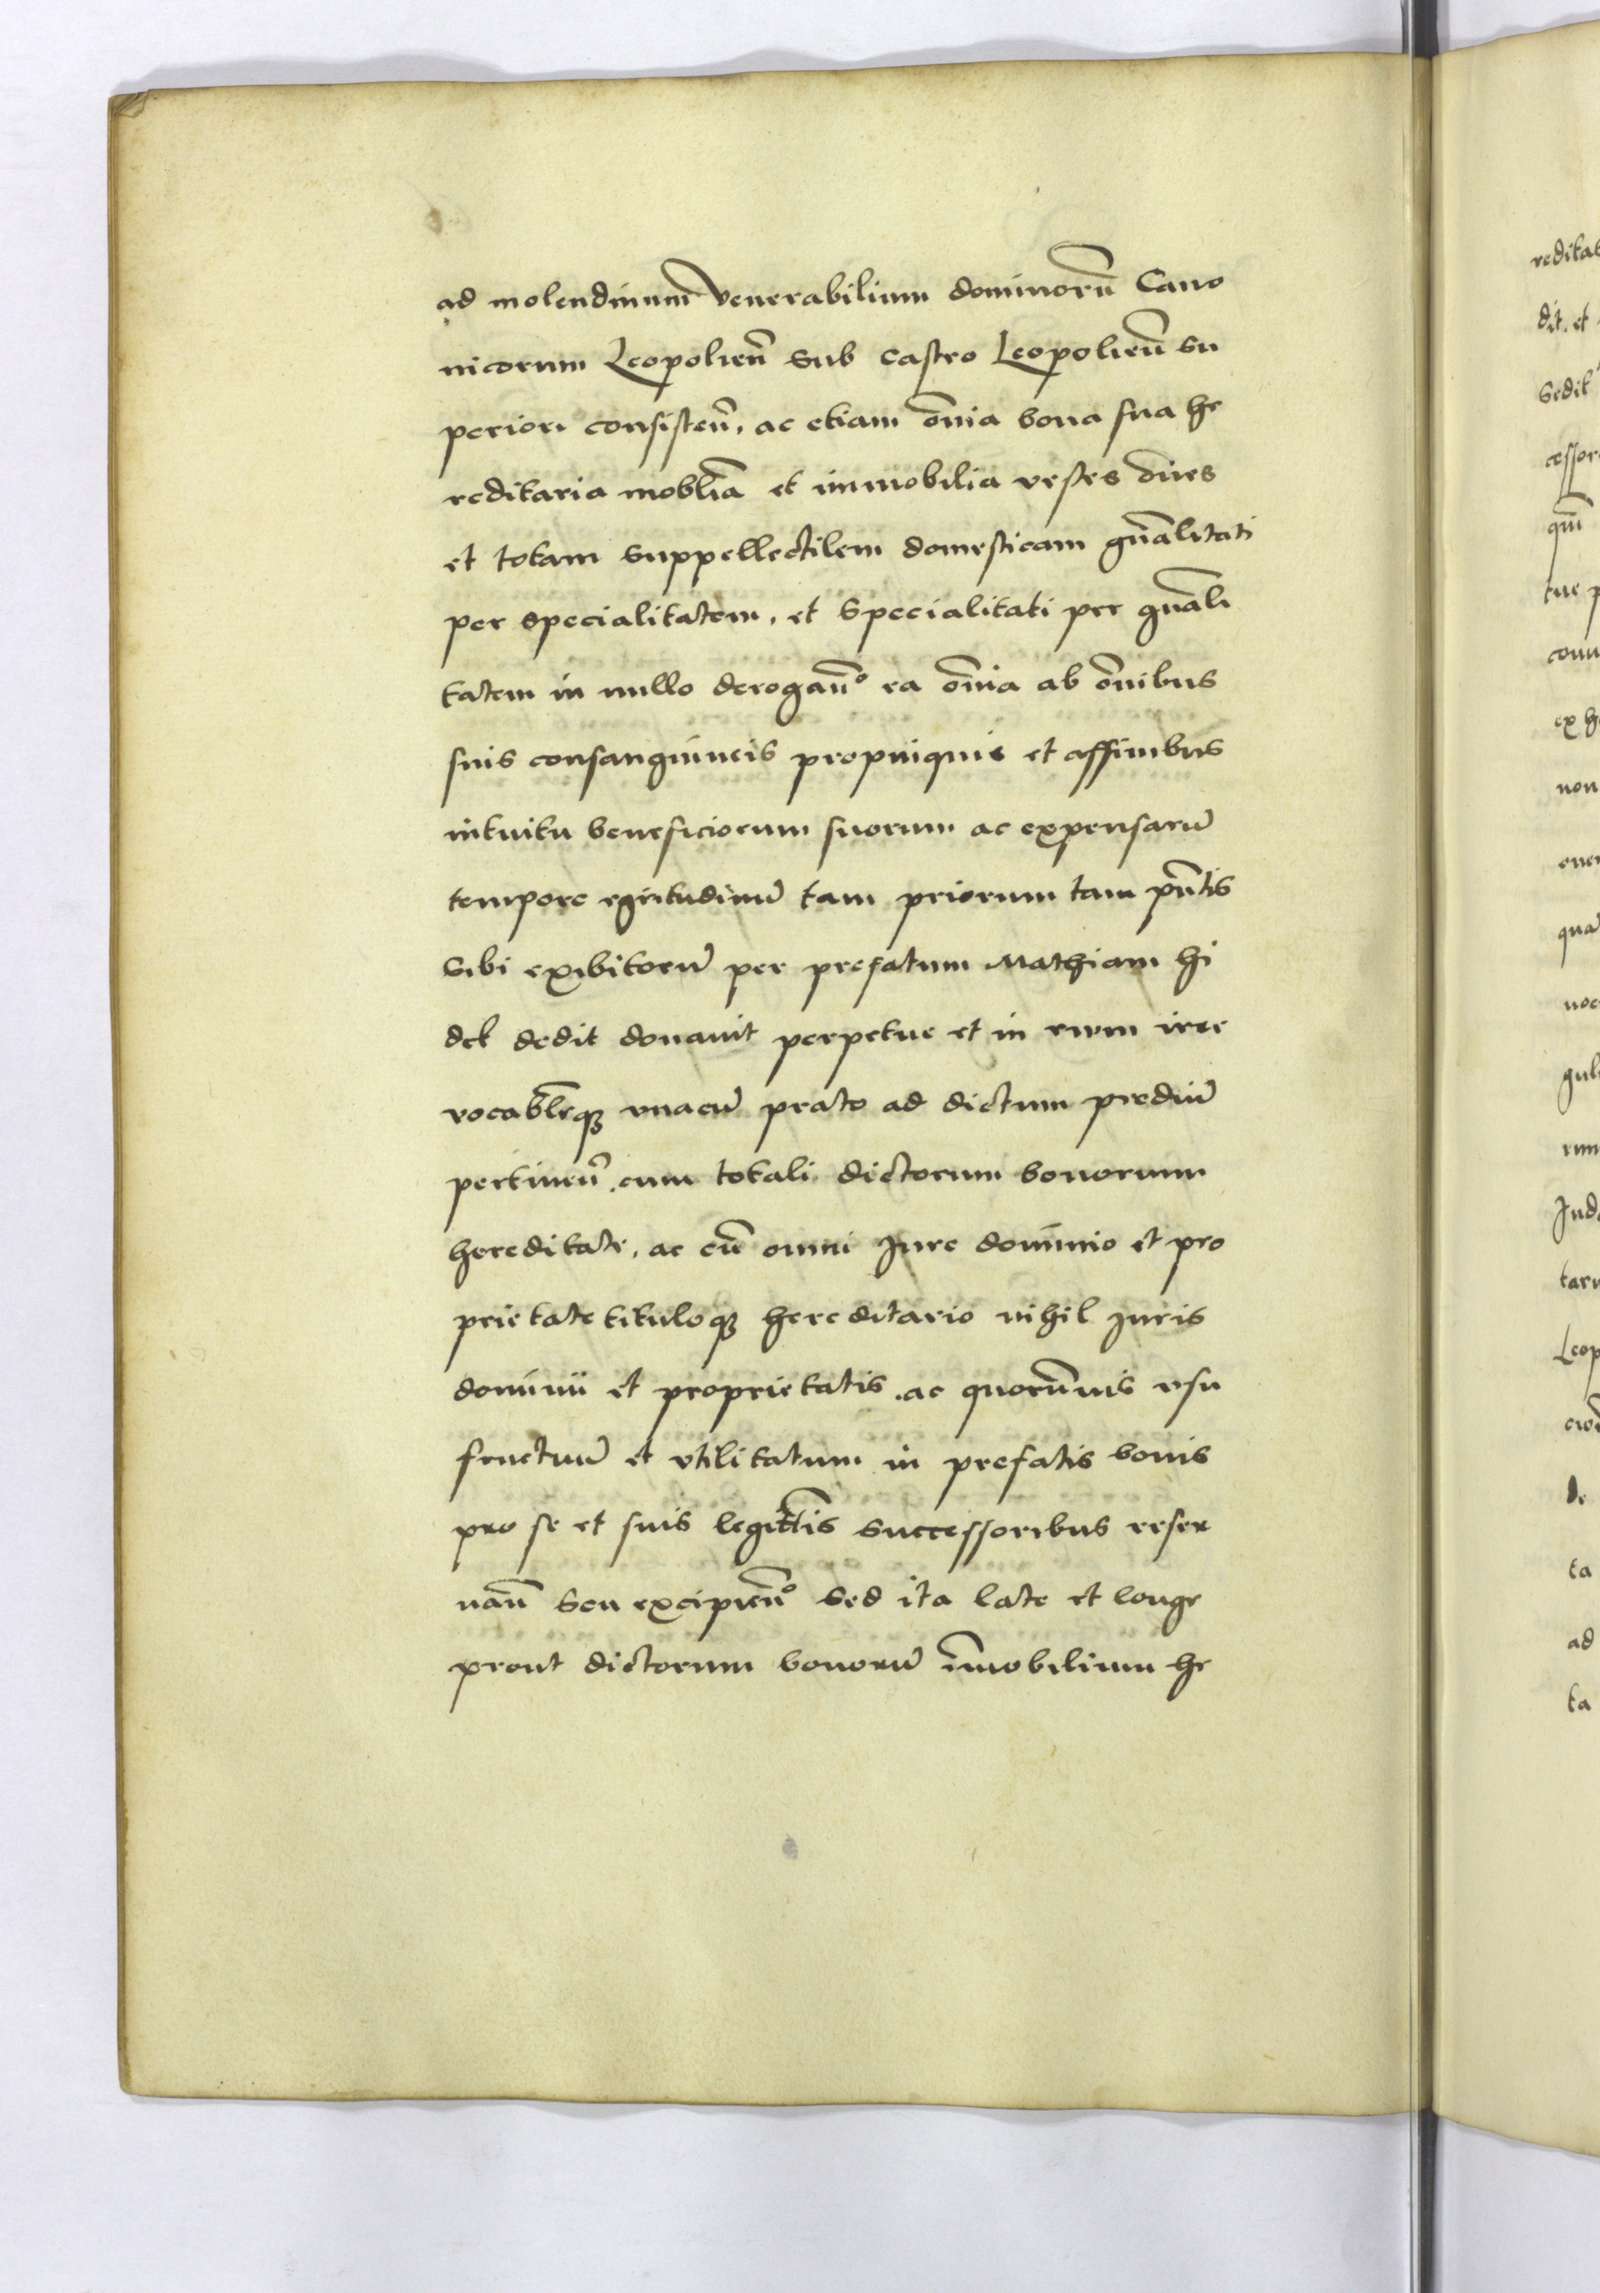 ad molendinum venerabilium dominorū Cano
nicorum Leopolien̄ sub castro Leopolien̄ su
periori consisten̄, ac etiam om̄ia bona sua he
reditaria mobl̄ia et immobilia vestes
et totam suppellectilem domesticam gn̄alitati
per specialitatem, et specialitati per gn̄ali
tatem in nullo derogan̄º ea om̄ia ab om̄ibus
suis consanguineis propinquis et affinibus
intuitu beneficiorum suorum ac expensarū
tempore egritudinū tam priorum tam pn̄tis
sibi exibitorū per prefatum Mathiam hi
del dedit donavit perpetue et in evum irre
vocabl̄rqꝫ vnacū prato ad dictum prediū
pertinen̄, cum totali dictorum bonorum
hereditate, ac cū omni Jure dominio et pro
prietate tituloqꝫ hereditario nihil Juris
dominii et proprietatis, ac quorūmvis vsu
fructuū et vtilitatum in prefatis bonis
pro se et suis legitt̄is successoribus reser
van̄ seu excipien̄º sed ita late et longe
prout dictorum bonorū īmobilium he
reditat
dit, et
sedit
cessor
quī
tue p
conu
ex h
non
qua
noc
gul
Jud
taru
Leop
de
ta
ad
ta